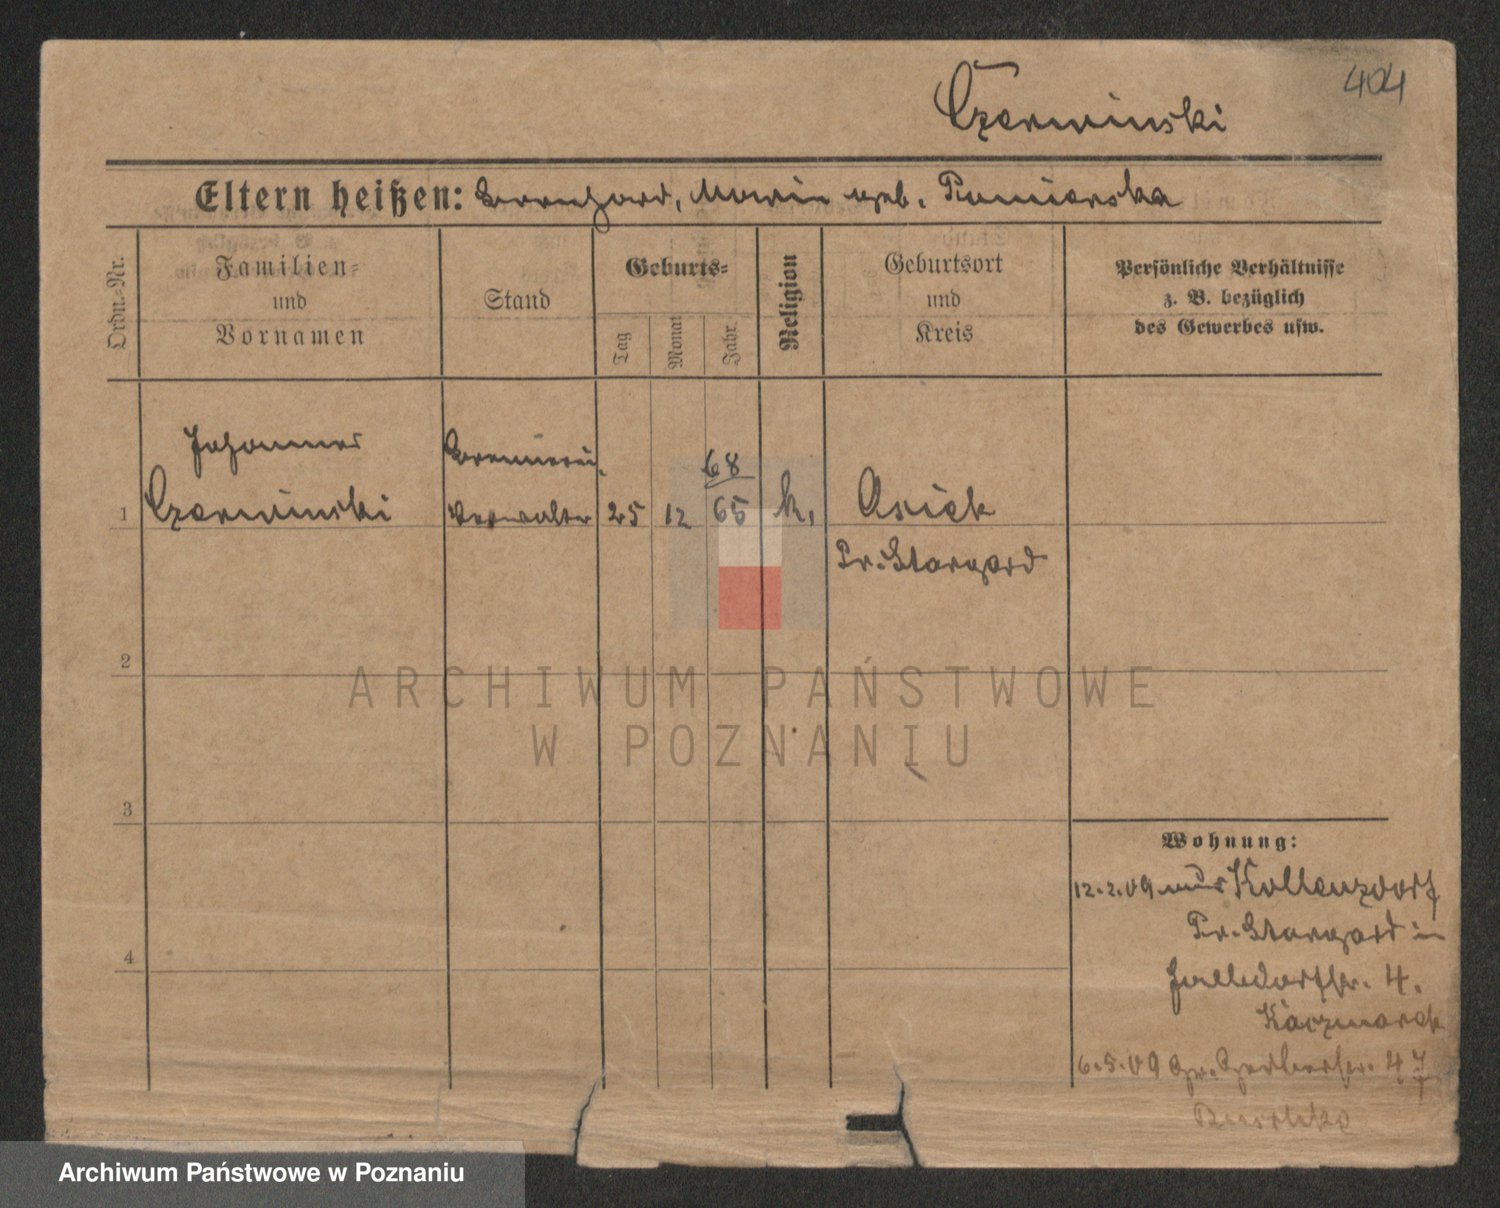 404
Czerwinski
Eltern heißen: Bernhard, Maria geb.
Ordn.-Nr.
Familien-
und
Vornamen
Stand
Geburts-
Tag
Monat
Jahr.
Religion
Geburtsort
und
Kreis
Persönliche Verhältnisse
z. B. bezüglich
des Gewerbes usw.
Johannes
Brennerei
68
1 Czerwinski Verwalter 25 12 65 k. Osiek
Pr. Stargard
2
ARCHIWUM PAŃSTWOWE
W POZNANIU
3
Wohnung:
12.2.09 aus
Pr. Stargard in
4
4.
Kaczmarek
6.5.09 Gr. Gerberstr. 47
Archiwum Państwowe w Poznaniu